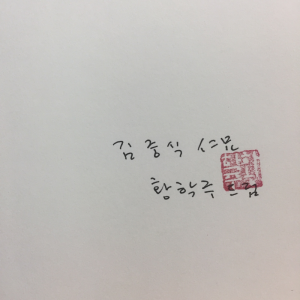 김중식 仁兄
황학주 드림